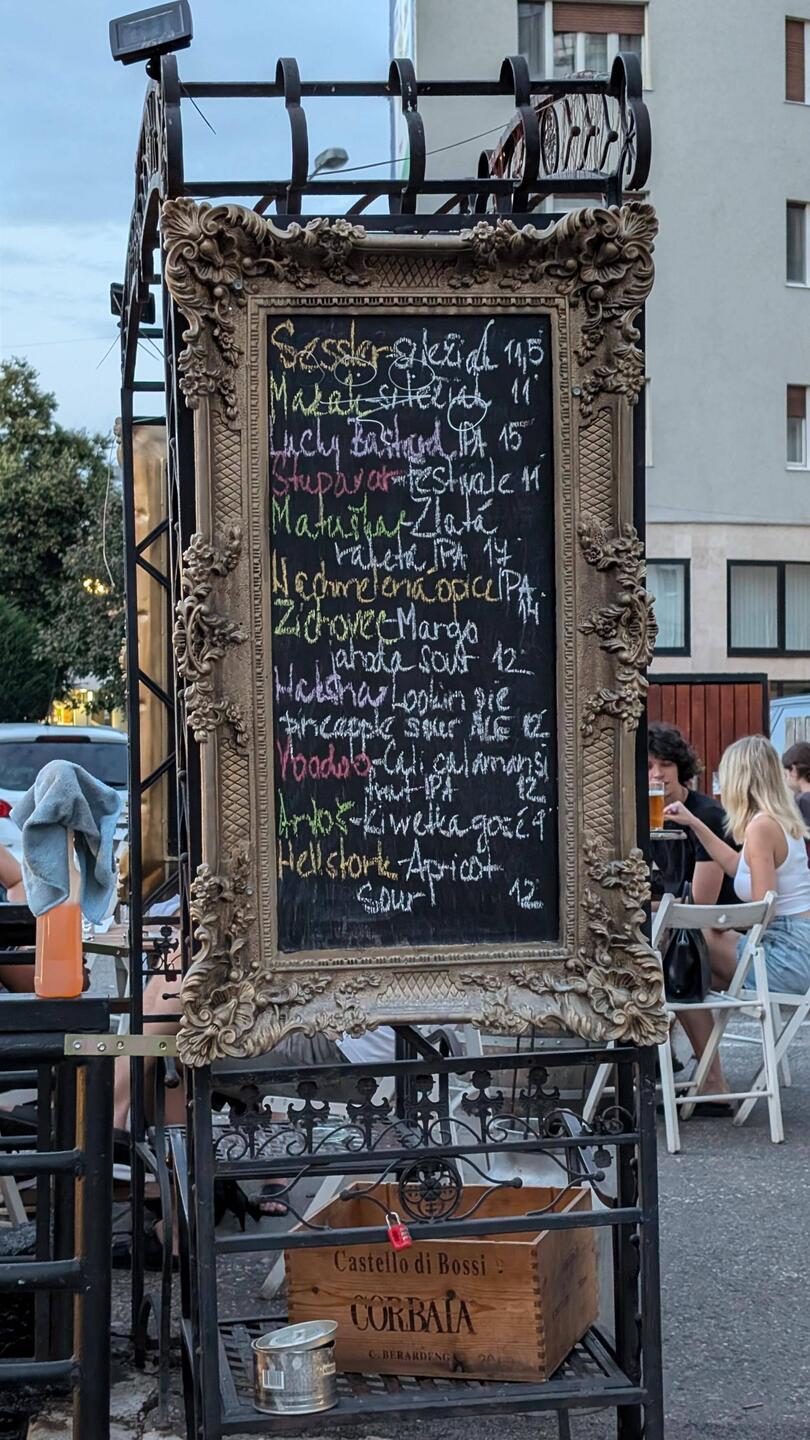 Sessler-svležiak 11,5
Mazák ležiak 11°
Lucky Bastard IPA 15°
Stupavar-festivale 11
Matuška-Zlatá
raketa IPA 17°
Nachmelená opice IPA
14
Zichovec-Mango
jahoda sour 12
Lookin pie
pineapple sour ALE 12
Voodoo-Cali calamansi
fruit IPA 12
kiwelka gose 9°
Hellstork-Apricot
Sour 12
Castello di Bossi
CORBAIA
C. BERARDENGA